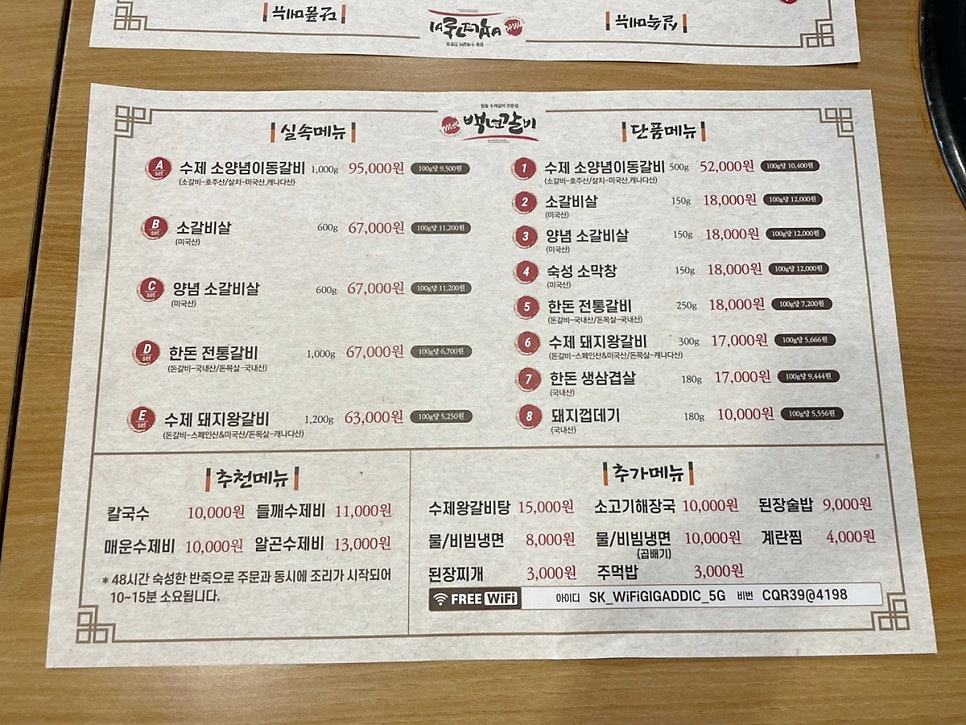 실속메뉴
참숯 수제갈비 전문점
백년갈비
단품메뉴
A set 수제 소양념이동갈비 1,000g 95,000원 100g당 9,500원
(소갈비-호주산/살치-미국산,캐나다산)
B set 소갈비살 600g 67,000원 100g당 11,200원
(미국산)
C set 양념 소갈비살 600g 67,000원 100g당 11,200원
(미국산)
D set 한돈 전통갈비 1,000g 67,000원 100g당 6,700원
(돈갈비-국내산/돈목살-국내산)
E set 수제 돼지왕갈비 1,200g 63,000원 100g당 5,250원
(돈갈비-스페인산&미국산/돈목살-캐나다산)
1 수제 소양념이동갈비 500g 52,000원 100g당 10,400원
(소갈비-호주산/살치-미국산,캐나다산)
2 소갈비살 150g 18,000원 100g당 12,000원
(미국산)
3 양념 소갈비살 150g 18,000원 100g당 12,000원
(미국산)
4 숙성 소막창 150g 18,000원 100g당 12,000원
(미국산)
5 한돈 전통갈비 250g 18,000원 100g당 7,200원
(돈갈비-국내산/돈목살-국내산)
6 수제 돼지왕갈비 300g 17,000원 100g당 5,666원
(돈갈비-스페인산&미국산/돈목살-캐나다산)
7 한돈 생삼겹살 180g 17,000원 100g당 9,444원
(국내산)
8 돼지껍데기 180g 10,000원 100g당 5,556원
(국내산)
추천메뉴
칼국수 10,000원 들깨수제비 11,000원
매운수제비 10,000원 알곤수제비 13,000원
* 48시간 숙성한 반죽으로 주문과 동시에 조리가 시작되어
10~15분 소요됩니다.
추가메뉴
수제왕갈비탕 15,000원 소고기해장국 10,000원 된장술밥 9,000원
물/비빔냉면 8,000원 물/비빔냉면 10,000원 계란찜 4,000원
(곱배기)
된장찌개 3,000원 주먹밥 3,000원
FREE WiFi 아이디 SK_WiFiGIGADDIC_5G 비번 CQR39@4198